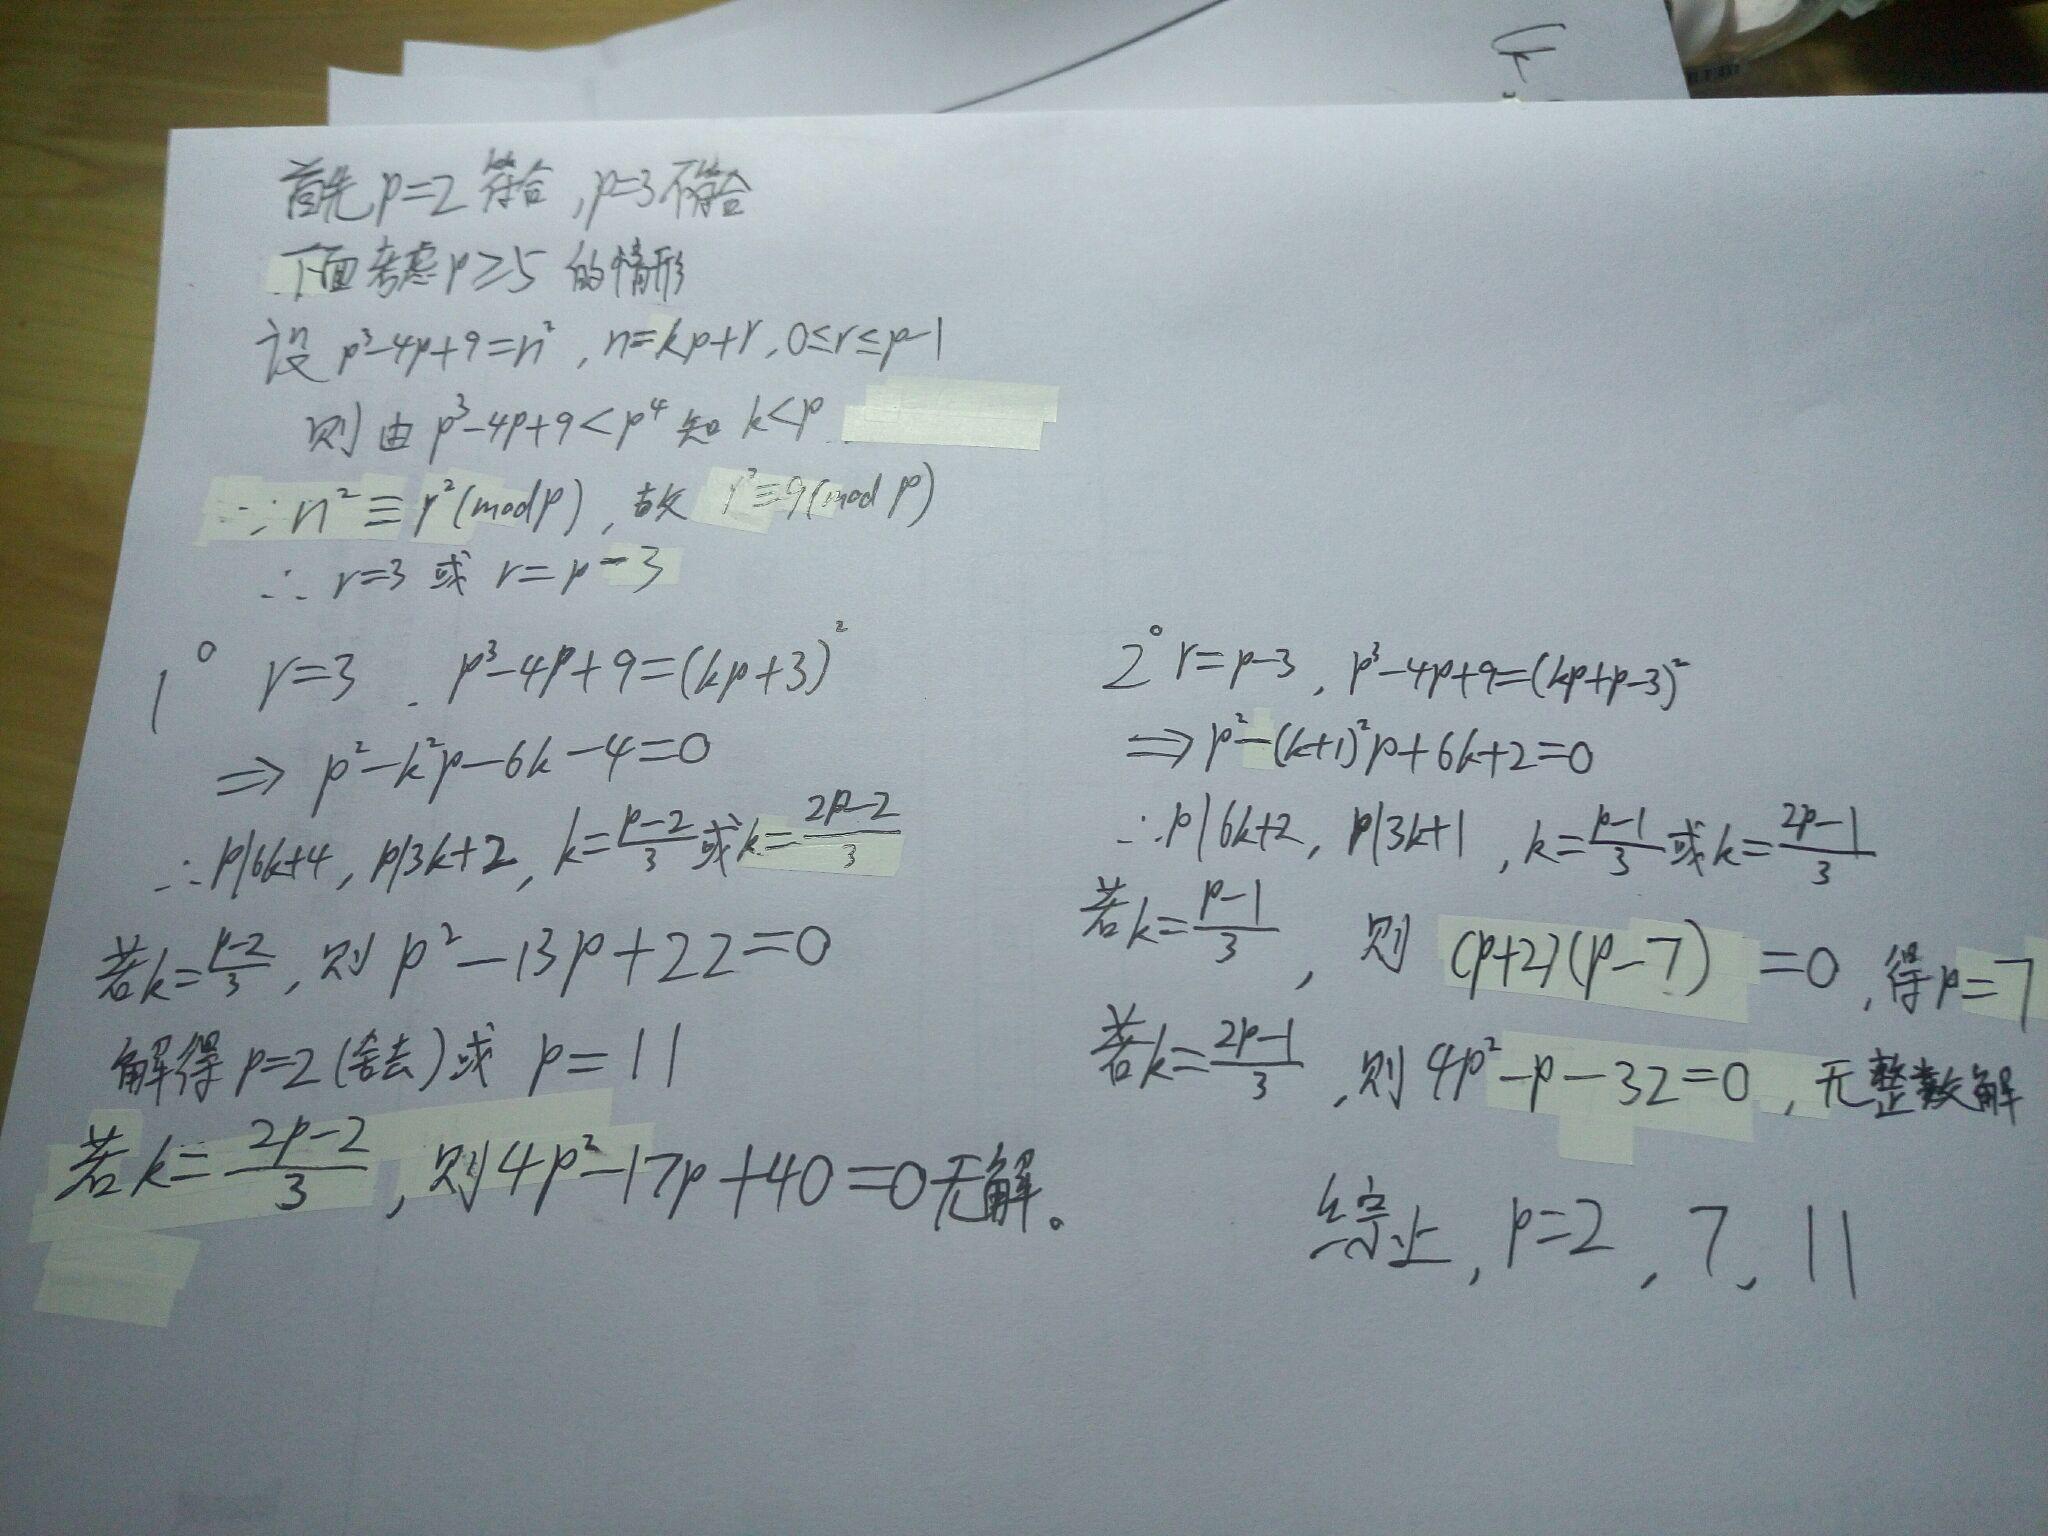 首先p=2符合,p=3不符合
下面考虑p≥5的情形
设 p³-4p+9=n², n=kp+r, 0≤r≤p-1
则由p³-4p+9<p⁴知 k<p
∵n²≡r²(modp), 故 r²≡9(mod p)
∴r=3或r=p-3
1° r=3. p³-4p+9=(kp+3)²
⇒p²-k²p-6k-4=0
∴p|6k+4, p|3k+2, k=\frac{p-2}{3}或k=\frac{2p-2}{3}
若k=\frac{p-2}{3}, 则p²-13p+22=0
解得p=2(舍去)或 p=11
若k=\frac{2p-2}{3}, 则4p²-17p+40=0无解。
2° r=p-3, p³-4p+9=(kp+p-3)²
⇒p²-(k+1)²p+6k+2=0
∴p|6k+2, p|3k+1, k=\frac{p-1}{3}或k=\frac{2p-1}{3}
若k=\frac{p-1}{3}, 则 (p+2)(p-7)=0, 得p=7
若k=\frac{2p-1}{3}, 则4p²-p-32=0, 无整数解
综上, p=2, 7, 11